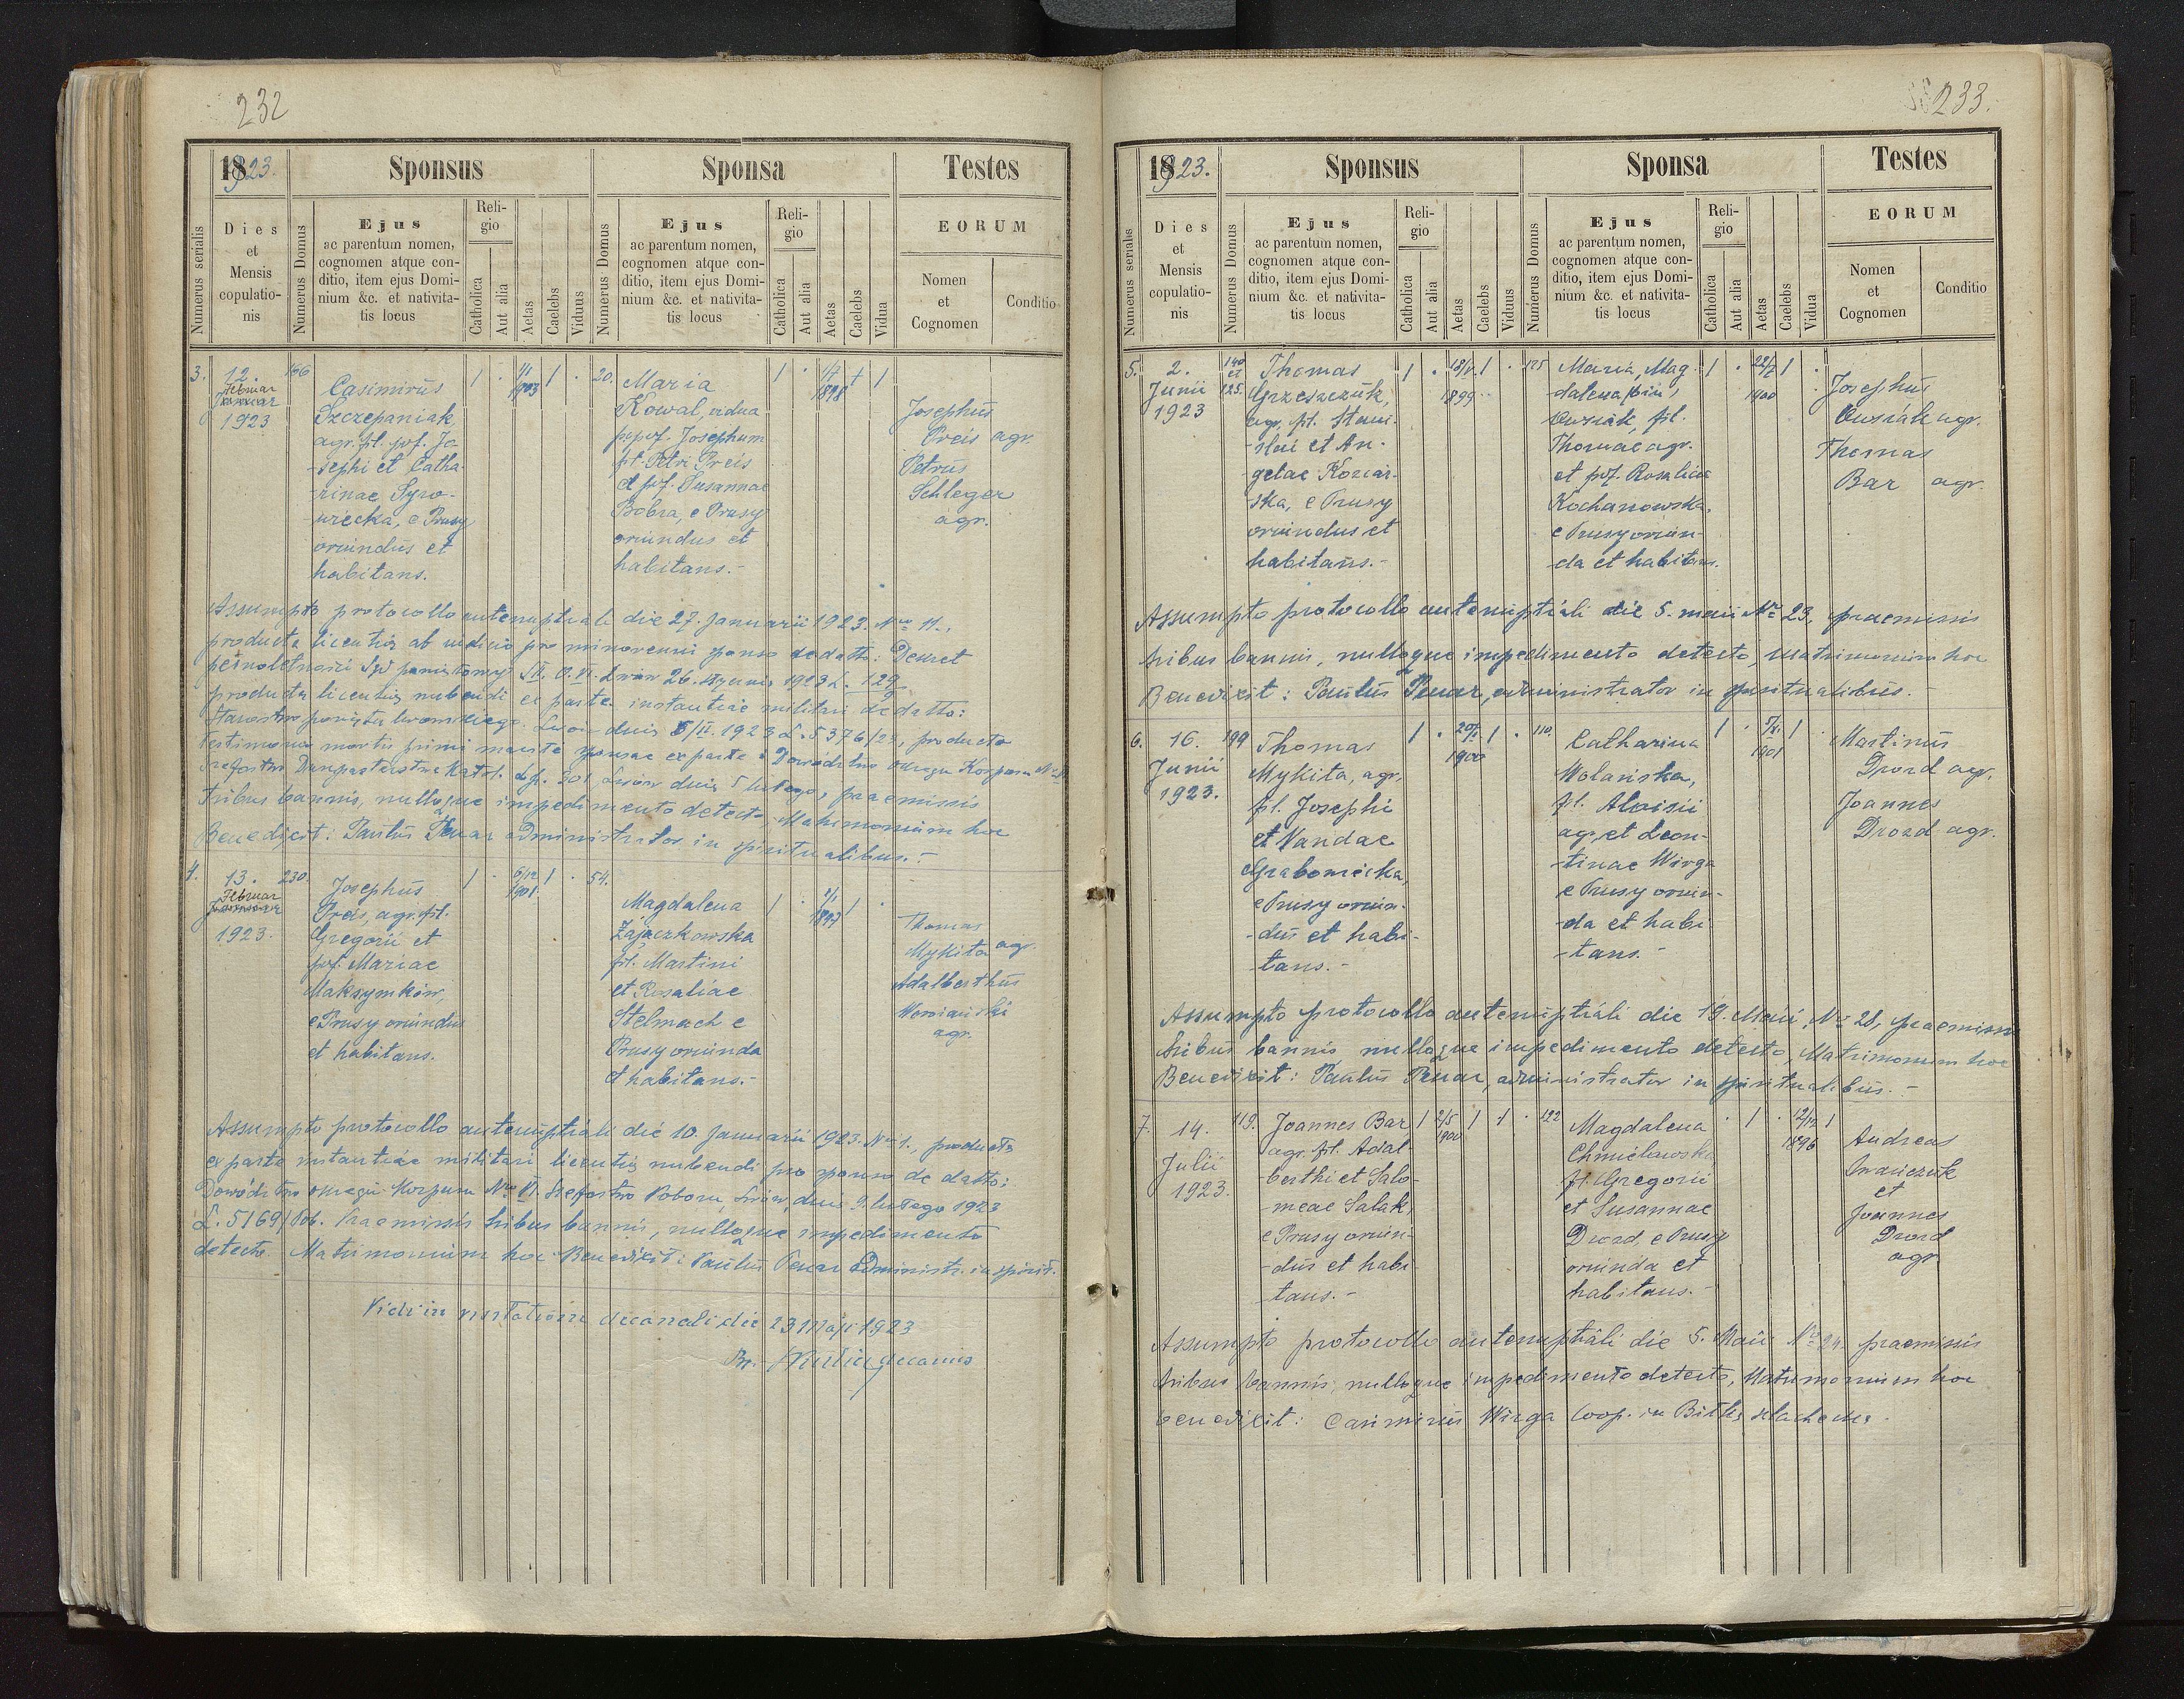 232
1923.
Sponsus
Sponsa
Testes
Numerus serialis
Dies
et
Mensis
copulatio-
nis
Numerus Domus
Ejus
ac parentum nomen,
cognomen atque con-
ditio, item ejus Domi-
nium &c. et nativita-
tis locus
Reli-
gio
Catholica
Aut alia
Aetas
Caelebs
Viduus
Numerus Domus
Ejus
ac parentum nomen,
cognomen atque con-
ditio, item ejus Domi-
nium &c. et nativita-
tis locus
Reli-
gio
Catholica
Aut alia
Aetas
Caelebs
Vidua
EORUM
Nomen
et
Cognomen
Conditio
3.
12.
Februar
1923
166
Casimirus
Szczepaniak,
agr. fil. pof. Jo-
-sephi et Catha-
-rinae Syro-
-wiecka, e Prusy
oriundus et
habitans.
1903
20.
Maria
Kowal, vidua
p. pof. Josephum
fil. Petri Preis
et pof. Susannae
Bobra, e Prusy
oriundus et
habitans.-
1898
Josephus
Preis agr.
Petrus
Schleger
agr.
Assumpto protocollo antenuptiali die 27. Januarii 1923. Nro 11.,
producta licentia ab judicio pro minorenni sponso de datto: Dekret
pełnoletności Sąd powiatowy Lwów 26. stycznia 1923 L. 129,
producta licentia nubendi ex parte instantiae militari de datto:
Starostwo powiatu lwowskiego. Lwów dnia 5/II. 1923 L. 5376/23, producto
testimonio mortis primi mariti sponsae ex parte: Dowództwo Okręgu Korpusu
Szefostwo Duszpasterstwa Katol. L. 301, Lwów dnia 5 lutego, praemissis
tribus bannis, nulloque impedimento detecto, Matrimonium hoc
Benedixit: Paulus Penar administrator in spiritualibus.-
4.
13.
Februar
1923.
230.
Josephus
Preis, agr. fil.
Gregorii et
pof. Mariae
Maksymków,
e Prusy oriundus
et habitans.
6/12
1901.
54.
Magdalena
Zajączkowska
fil. Martini
et Rosaliae
Stelmach e
Prusy oriunda
et habitans.-
1897
Thomas
Mykita agr.
Adalberthus
Woroniański
agr.
Assumpto protocollo antenuptiali die 10. Januarii 1923. Nro 1., producta
ex parte instantiae militari licentia nubendi pro sponso de datto:
Dowództwo okręgu Korpusu Nro VI. Szefostwo Poboru, Lwów, dnia 9. lutego 1923
L. 5169/Pob. Praemissis tribus bannis, nulloque impedimento
detecto. Matrimonium hoc Benedixit: Paulus Penar Administr. in spirit.
Vidi in visitatione decanali die 23 Maji 1923
decanus
233.
1923.
Sponsus
Sponsa
Testes
Numerus serialis
Dies
et
Mensis
copulatio-
nis
Numerus Domus
Ejus
ac parentum nomen,
cognomen atque con-
ditio, item ejus Domi-
nium &c. et nativita-
tis locus
Reli-
gio
Catholica
Aut alia
Aetas
Caelebs
Viduus
Numerus Domus
Ejus
ac parentum nomen,
cognomen atque con-
ditio, item ejus Domi-
nium &c. et nativita-
tis locus
Reli-
gio
Catholica
Aut alia
Aetas
Caelebs
Vidua
EORUM
Nomen
et
Cognomen
Conditio
5.
2.
Junii
1923
140
et
125.
Thomas
Grzeszczuk,
agr. fil. Stani-
-slai et An-
gelae Koziar-
ska, e Prusy
oriundus et
habitans.-
1899
125
Maria, Mag-
dalena (bin.)
Owsiak, fil.
Thomae agr.
et pof. Rosaliae
Kochanowska,
e Prusy oriun-
da et habitans.
1900
Josephus
Owsiak agr.
Thomas
Bar agr.
Assumpto protocollo antenuptiali die 5. maii Nro 23, praemissis
tribus bannis, nulloque impedimento detecto, Matrimonium hoc
Benedixit: Paulus Penar, administrator in spiritualibus.-
6.
16.
Junii
1923.
199
Thomas
Mykita, agr.
fil. Josephi
et Vandae
Grabowiecka,
e Prusy oriun-
-dus et habi-
tans.-
1900
110.
Catharina
Wolańska,
fil. Aloisii
agr. et Leon-
-tinae Wirga
e Prusy oriun-
-da et habi-
-tans.-
1901
Martinus
Drozd agr.
Joannes
Drozd agr.
Assumpto protocollo antenuptiali die 19. Maii, Nro 28, praemissis
tribus bannis nulloque impedimento detecto, Matrimonium hoc
Benedixit: Paulus Penar, administrator in spiritualibus.-
7.
14.
Julii
1923.
119.
Joannes Bar
agr. fil. Adal-
berthi et Salo-
-meae Salak,
e Prusy oriun-
-dus et habi-
tans.-
2/5
1900
122
Magdalena
Chmielowska
fil. Gregorii
et Susannae
Drozd, e Prusy
oriunda et
habitans.-
12/12
1896
Andreas
Iwańczuk
et
Joannes
Drozd
agr.
Assumpto protocollo antenuptiali die 5. Maii Nro 24. praemissis
tribus bannis, nulloque impedimento detecto, Matrimonium hoc
benedixit: Casimirus Wirga Coop. in Biłka szlachecka.